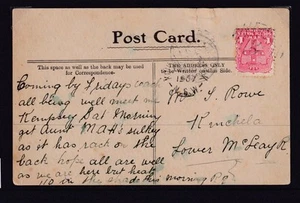 Post Card.
This space as well as the back may be used
for Correspondence.
THE ADDRESS ONLY
to be Written on this Side.
1907
Coming by Fridays coach
all being well meet me
Kempsey Sat Morning
get Aunt sulky
as it has rack on the
back hope all are well
as we are here but heat
in the shade this morning
S Rowe
Kinchela
Lower McLeay R